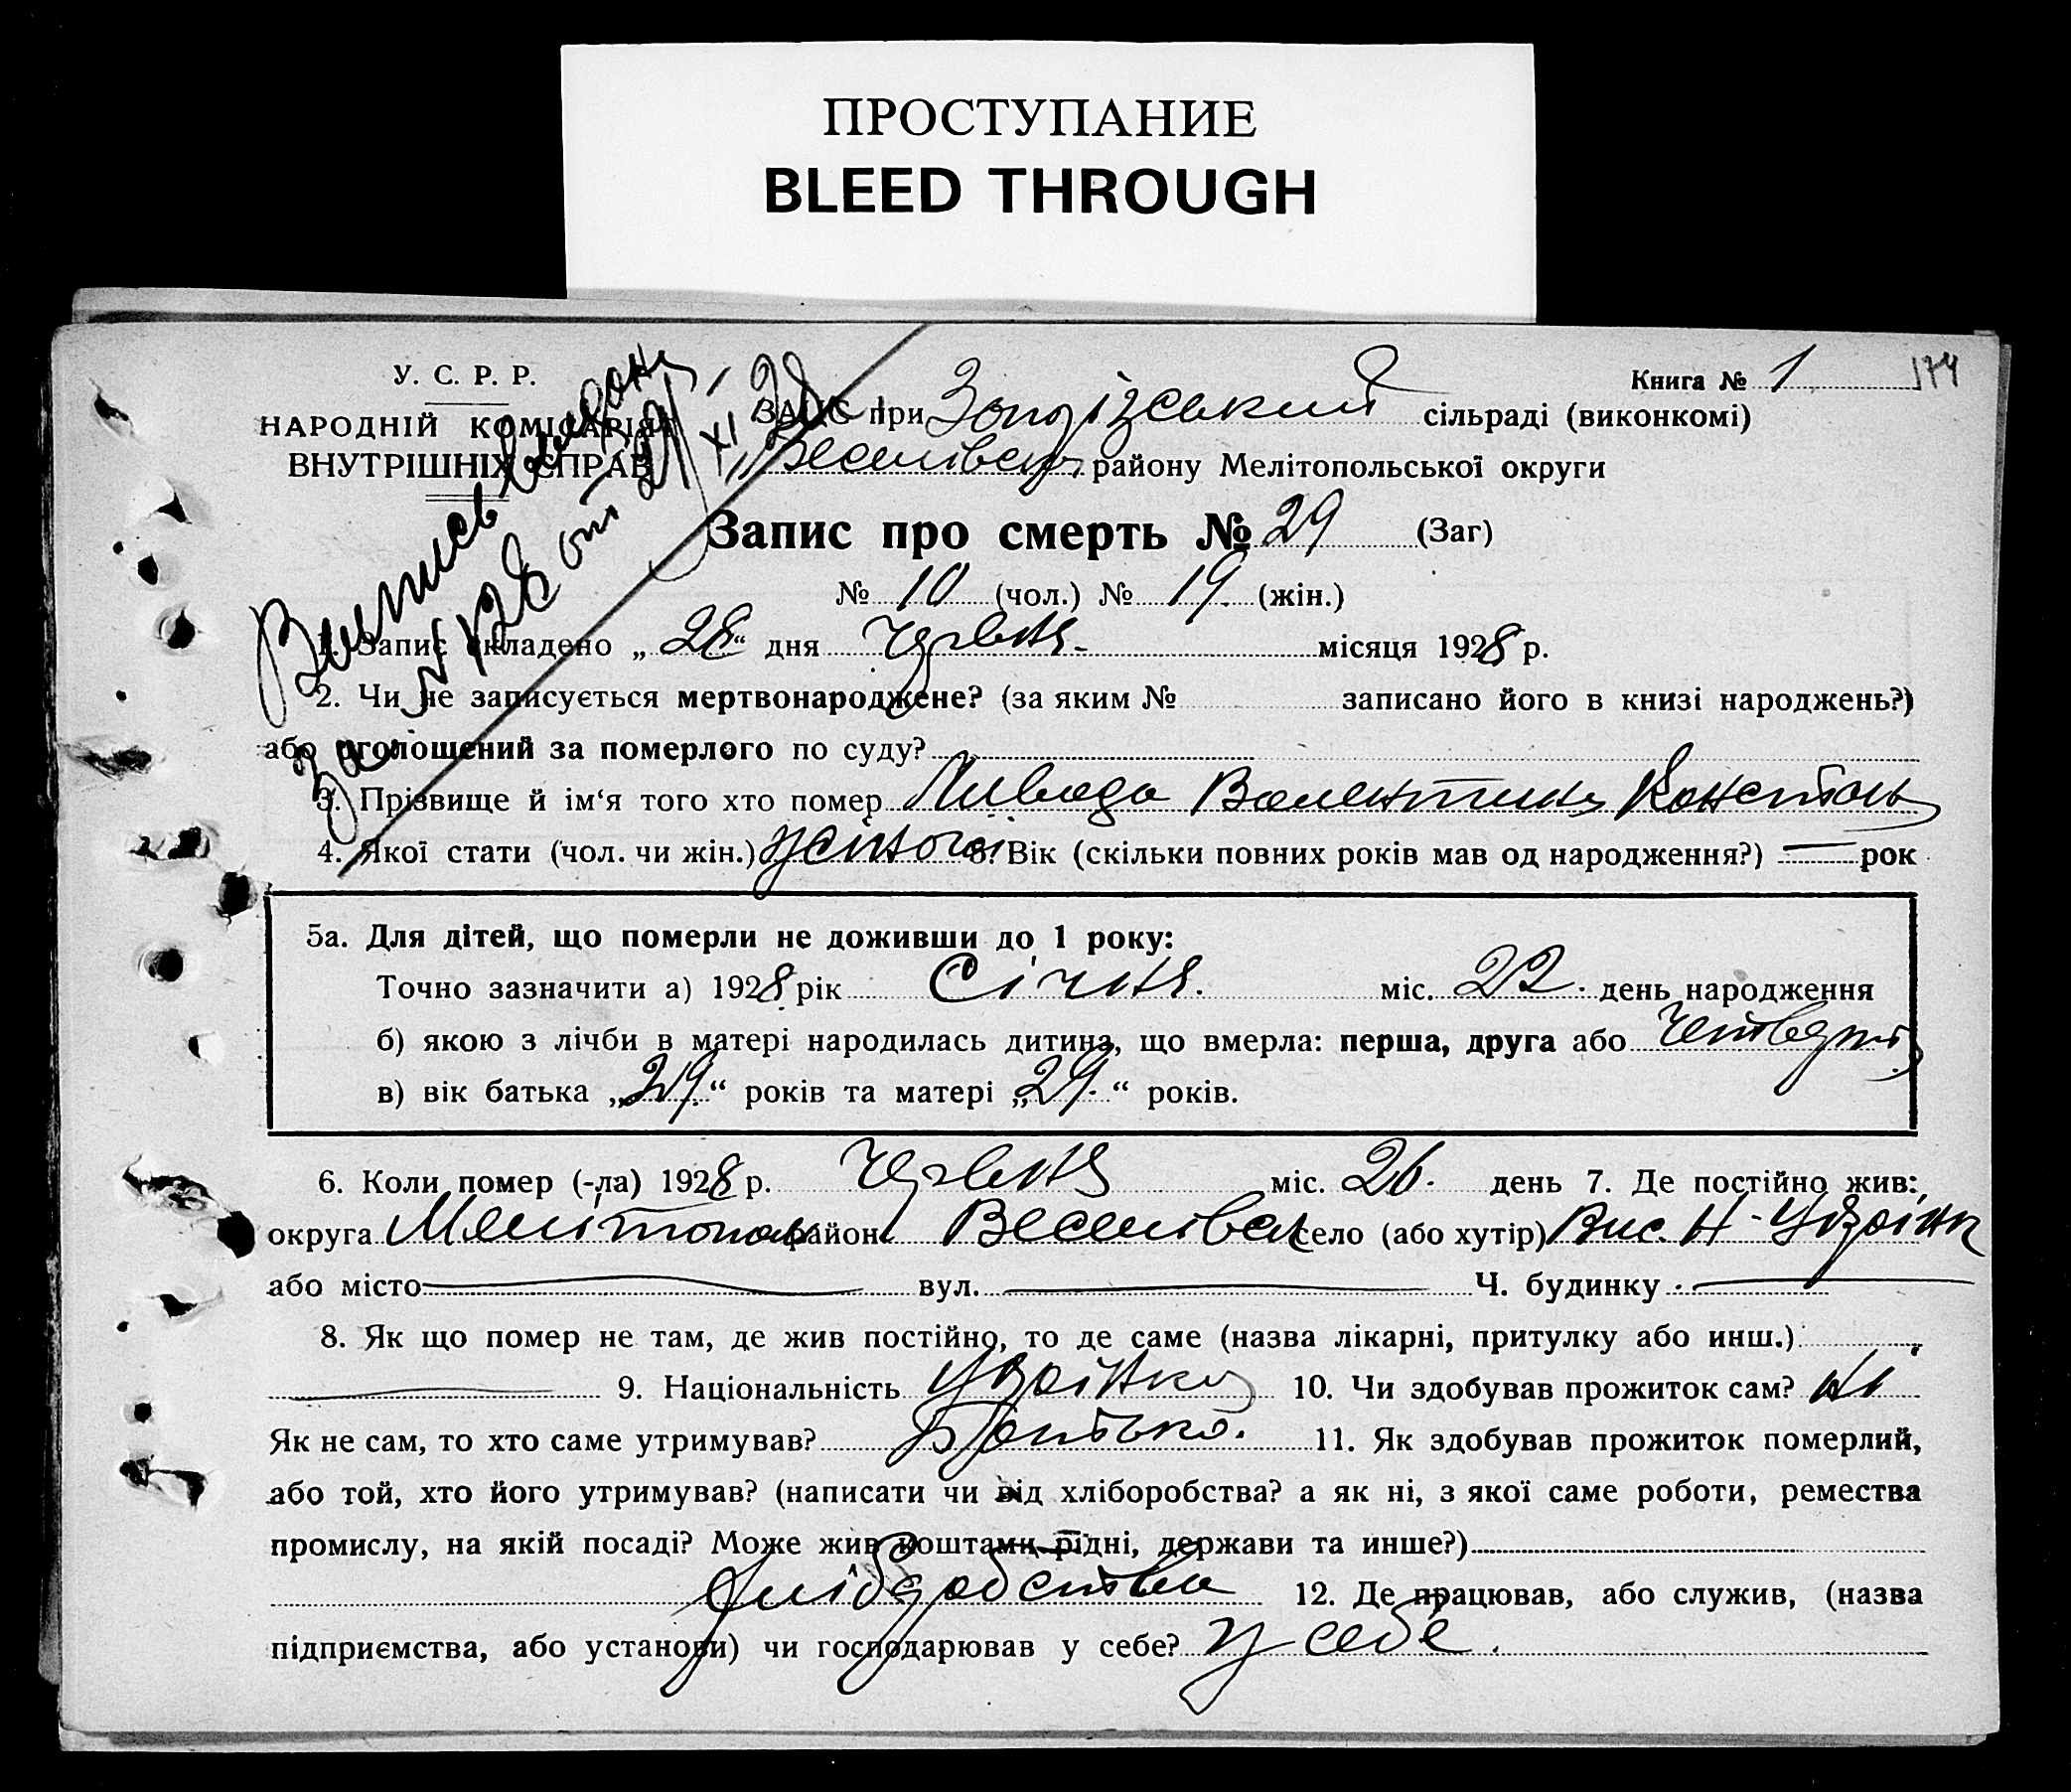 ПРОСТУПАНИЕ
BLEED THROUGH
У. С. Р. Р.
НАРОДНІЙ КОМІСАРІЯТ
ВНУТРІШНІХ СПРАВ
Книга № 1
174
ЗАГС при сільраді (виконкомі)
району Мелітопольської округи
Запис про смерть № 29 (Заг)
№ 10 (чол.) № 19 (жін.)
1. Запис складено „28“ дня червня місяця 1928 р.
2. Чи не записується мертвонароджене? (за яким № записано його в книзі народжень?)
або оголошений за померлого по суду?
3. Прізвище й ім‘я того хто помер Ливада Валентина Констан
4. Якої стати (чол. чи жін.) жіночої 5. Вік (скільки повних років мав од народження?) — рок
5а. Для дітей, що померли не доживши до 1 року:
Точно зазначити а) 1928 рік Січня. міс. 22. день народження
б) якою з лічби в матері народилась дитина, що вмерла: перша, друга або
в) вік батька „29“ років та матері „29.“ років.
6. Коли помер (-ла) 1928 р. червня міс. 26. день 7. Де постійно жив:
округа Мелітополь район Веселівськ село (або хутір) Вис. Н-
або місто вул. Ч. будинку
8. Як що помер не там, де жив постійно, то де саме (назва лікарні, притулку або инш.)
9. Національність 10. Чи здобував прожиток сам? ні
Як не сам, то хто саме утримував? Батько. 11. Як здобував прожиток померлий,
або той, хто його утримував? (написати чи від хліборобства? а як ні, з якої саме роботи, ремества
промислу, на якій посаді? Може жив коштами рідні, держави та инше?)
хліборобства 12. Де працював, або служив, (назва
підприємства, або установи) чи господарював у себе? у себе.
Випись выдана
За № 128 от 29/XI 28